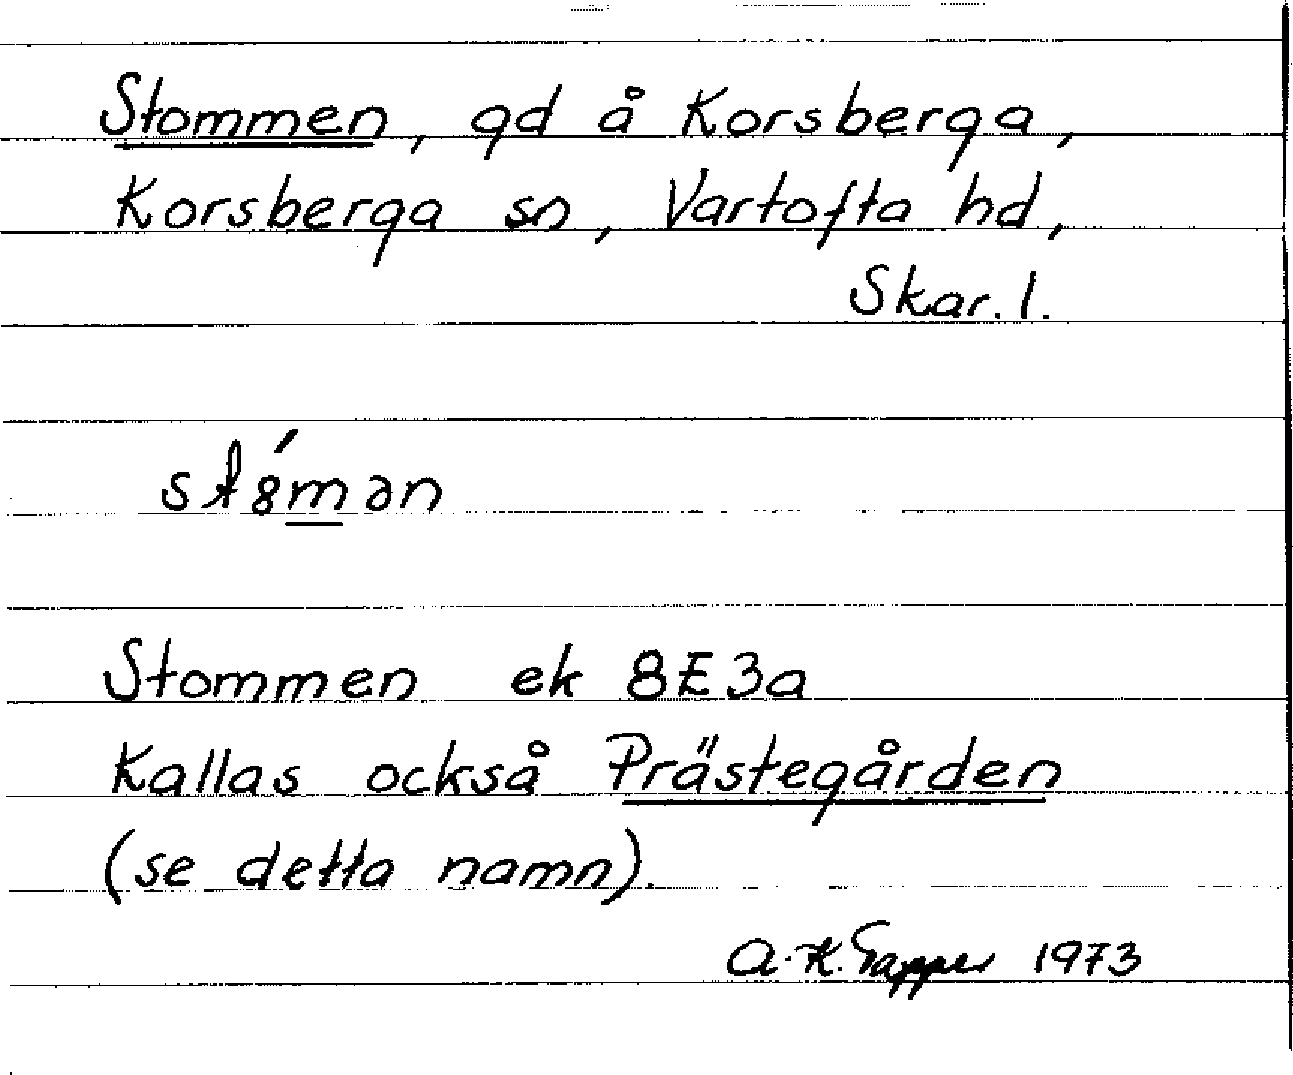 Stommen, gd å Korsberga,
Korsberga sn, Vartofta hd,
Skar. l.
st8́mən
Stommen ek 8E3a
Kallas också Prästegården
(se detta namn).
A.-K. Tapper 1973